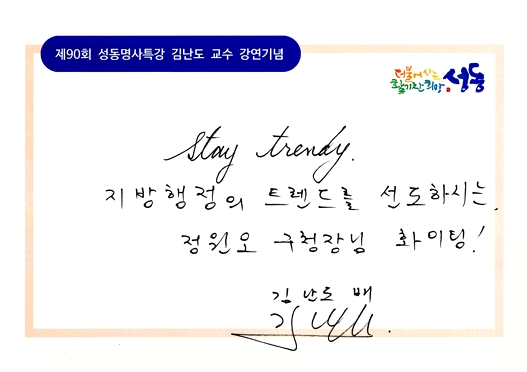 제90회 성동명사특강 김난도 교수 강연기념
더불어사는
활기찬 희망, 성동
Stay trendy.
지방행정의 트렌드를 선도하시는
정원오 구청장님 화이팅!
김난도 배